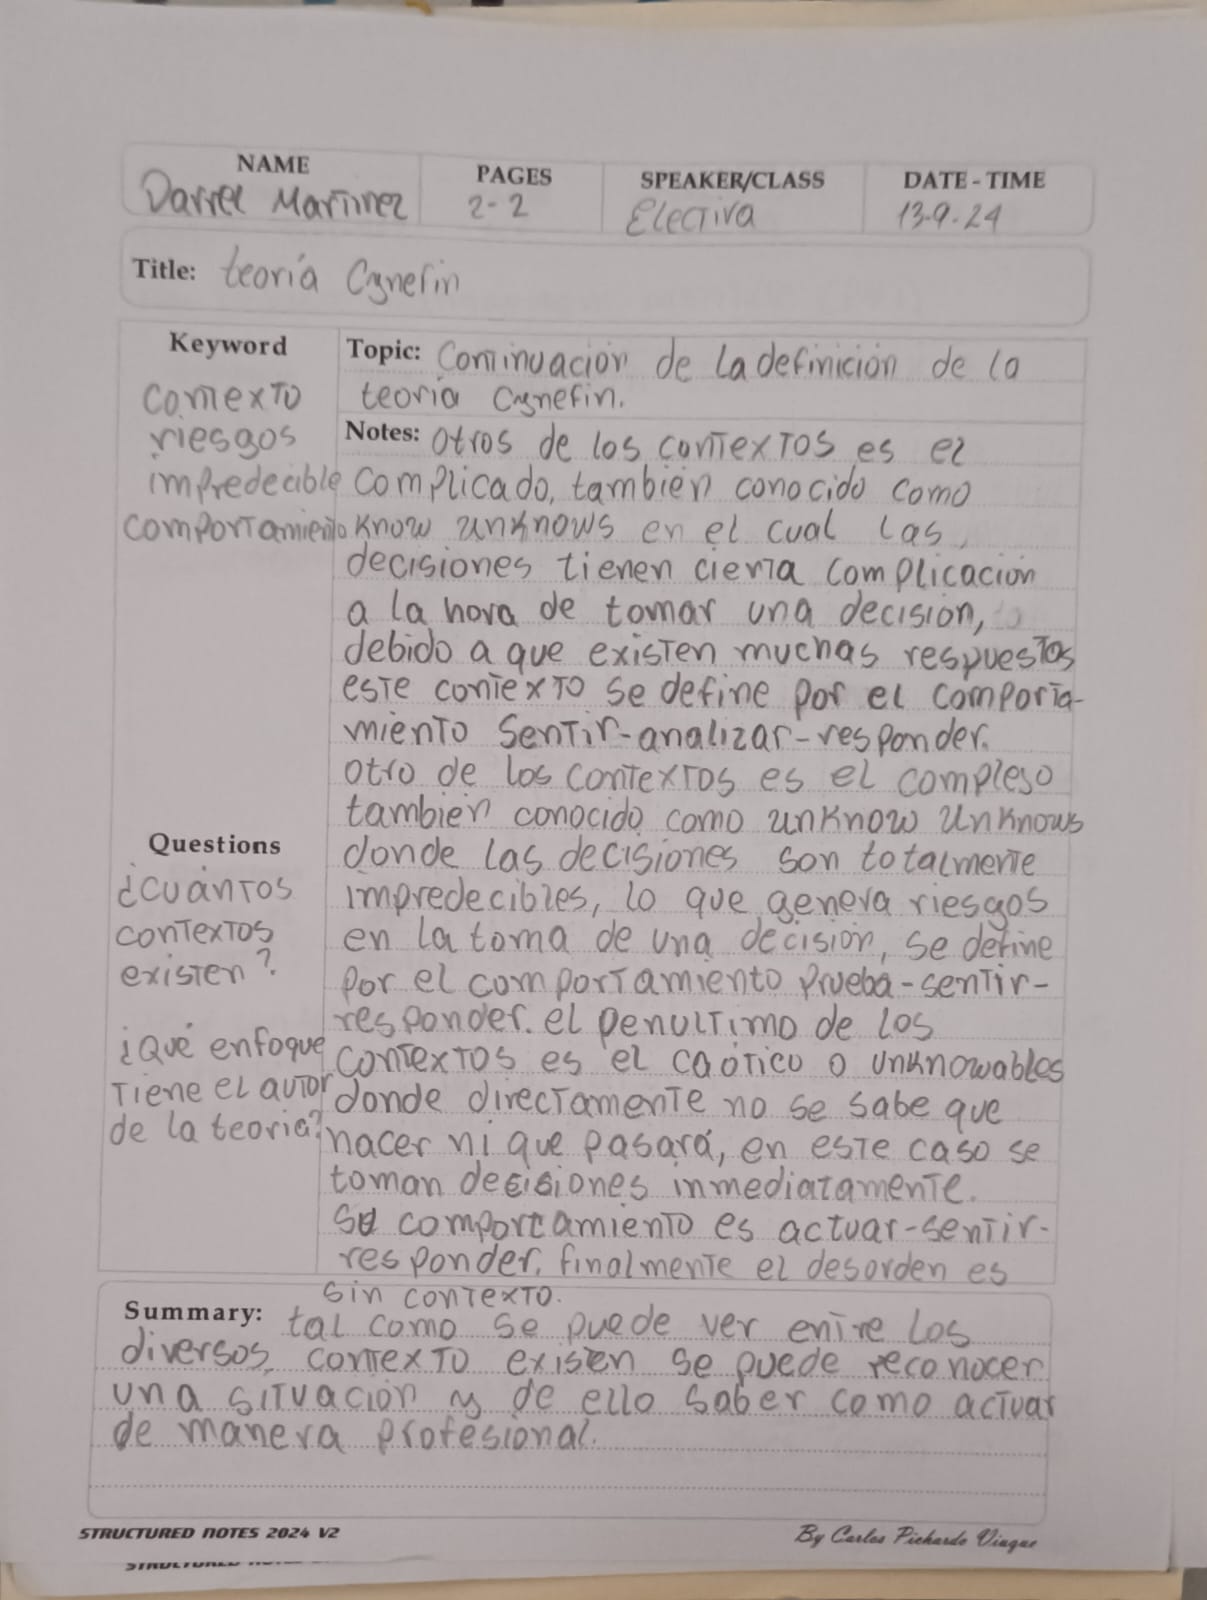 NAME
Darrel Martinez
PAGES
2-2
SPEAKER/CLASS
Electiva
DATE - TIME
13-9-24
Title: teoría Cynefin
Keyword
Contexto
riesgos
impredecible
comportamiento
Questions
¿cuántos
contextos
existen?
¿Qué enfoque
Tiene el autor
de la teoría?
Topic: Continuación de la definición de la
teoría Cynefin.
Notes: Otros de los contextos es el
complicado, también conocido como
know unknows en el cual las
decisiones tienen cierta complicación
a la hora de tomar una decisión,
debido a que existen muchas respuestas
este contexto se define por el comporta-
miento Sentir-analizar-responder.
otro de los contextos es el compleso
también conocido como unknow unknows
donde las decisiones son totalmente
impredecibles, lo que genera riesgos
en la toma de una decisión, se define
por el comportamiento Prueba-sentir-
responder. el penultimo de los
contextos es el caótico o unknowables
donde directamente no se sabe que
hacer ni que pasará, en este caso se
toman decisiones inmediatamente.
Su comportamiento es actuar-sentir-
responder. finalmente el desorden es
sin contexto.
Summary: tal como se puede ver entre los
diversos contexto existen se puede reconocer
una situación y de ello saber como actuar
de manera profesional.
STRUCTURED NOTES 2024 V2
By Carlos Pichardo Viuque